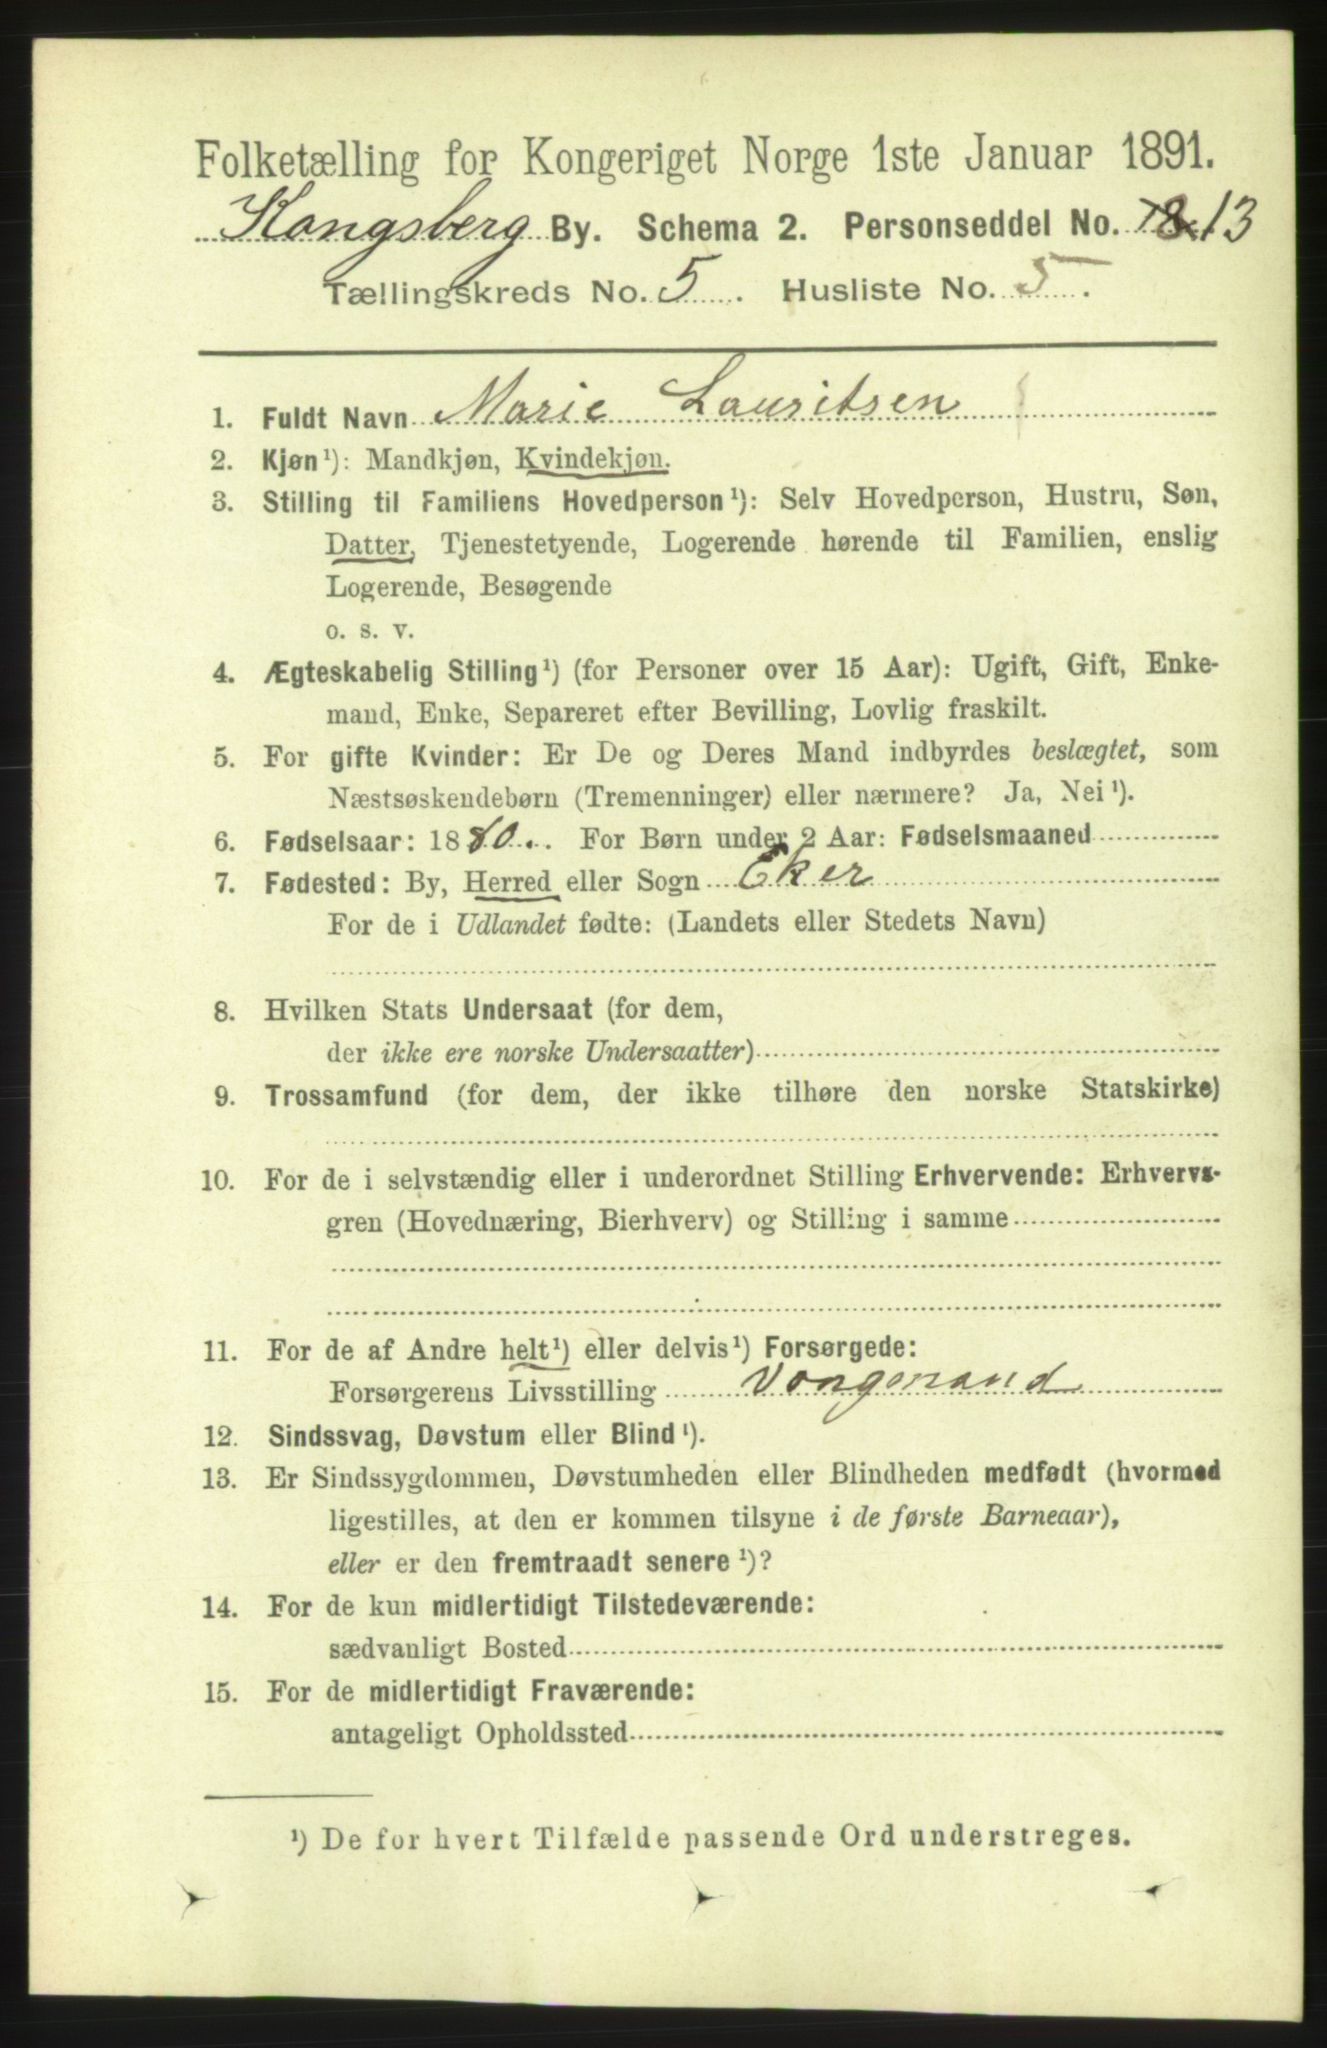 Folketælling for Kongeriget Norge 1ste Januar 1891.
Kongsberg By. Schema 2. Personseddel No. 13
Tællingskreds No. 5. Husliste No. 5.
1. Fuldt Navn Marie Lauritsen
2. Kjøn¹): Mandkjøn, Kvindekjøn.
3. Stilling til Familiens Hovedperson¹): Selv Hovedperson, Hustru, Søn,
Datter, Tjenestetyende, Logerende hørende til Familien, enslig
Logerende, Besøgende
o. s. v.
4. Ægteskabelig Stilling¹) (for Personer over 15 Aar): Ugift, Gift, Enke-
mand, Enke, Separeret efter Bevilling, Lovlig fraskilt.
5. For gifte Kvinder: Er De og Deres Mand indbyrdes beslægtet, som
Næstsøskendebørn (Tremenninger) eller nærmere? Ja, Nei¹).
6. Fødselsaar: 1880. For Børn under 2 Aar: Fødselsmaaned
7. Fødested: By, Herred eller Sogn Eker
For de i Udlandet fødte: (Landets eller Stedets Navn)
8. Hvilken Stats Undersaat (for dem,
der ikke ere norske Undersaatter)
9. Trossamfund (for dem, der ikke tilhøre den norske Statskirke)
10. For de i selvstændig eller i underordnet Stilling Erhvervende: Erhvervs-
gren (Hovednæring, Bierhverv) og Stilling i samme
11. For de af Andre helt¹) eller delvis¹) Forsørgede:
Forsørgerens Livsstilling Vongmand
12. Sindssvag, Døvstum eller Blind¹).
13. Er Sindssygdommen, Døvstumheden eller Blindheden medfødt (hvormed
ligestilles, at den er kommen tilsyne i de første Barneaar),
eller er den fremtraadt senere¹)?
14. For de kun midlertidigt Tilstedeværende:
sædvanligt Bosted
15. For de midlertidigt Fraværende:
antageligt Opholdssted
¹) De for hvert Tilfælde passende Ord understreges.